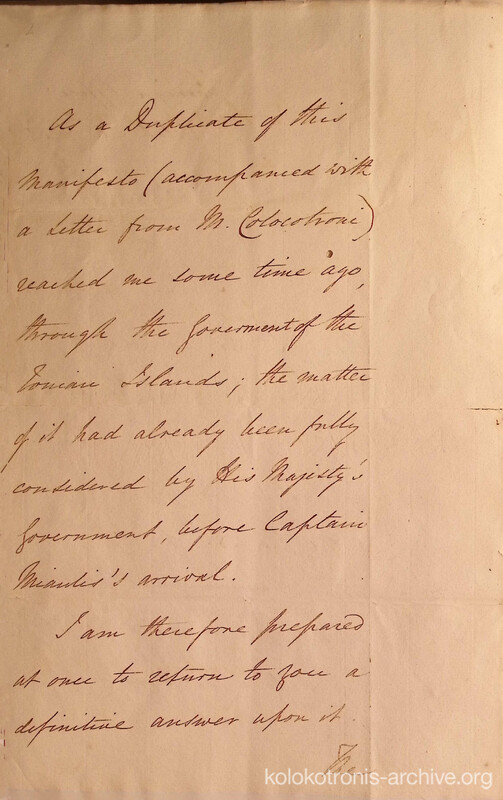 As a Duplicate of this
Manifesto (accompanied with
a Letter from M. Colocotroni)
reached me some time ago,
through the Goverment of the
Ionian Islands; the matter
of it had already been fully
considered by His Majesty's
Government, before Captain
Miaulis's arrival.
I am therefore prepared
at once to return to you a
definitive answer upon it.
The
kolokotronis-archive.org